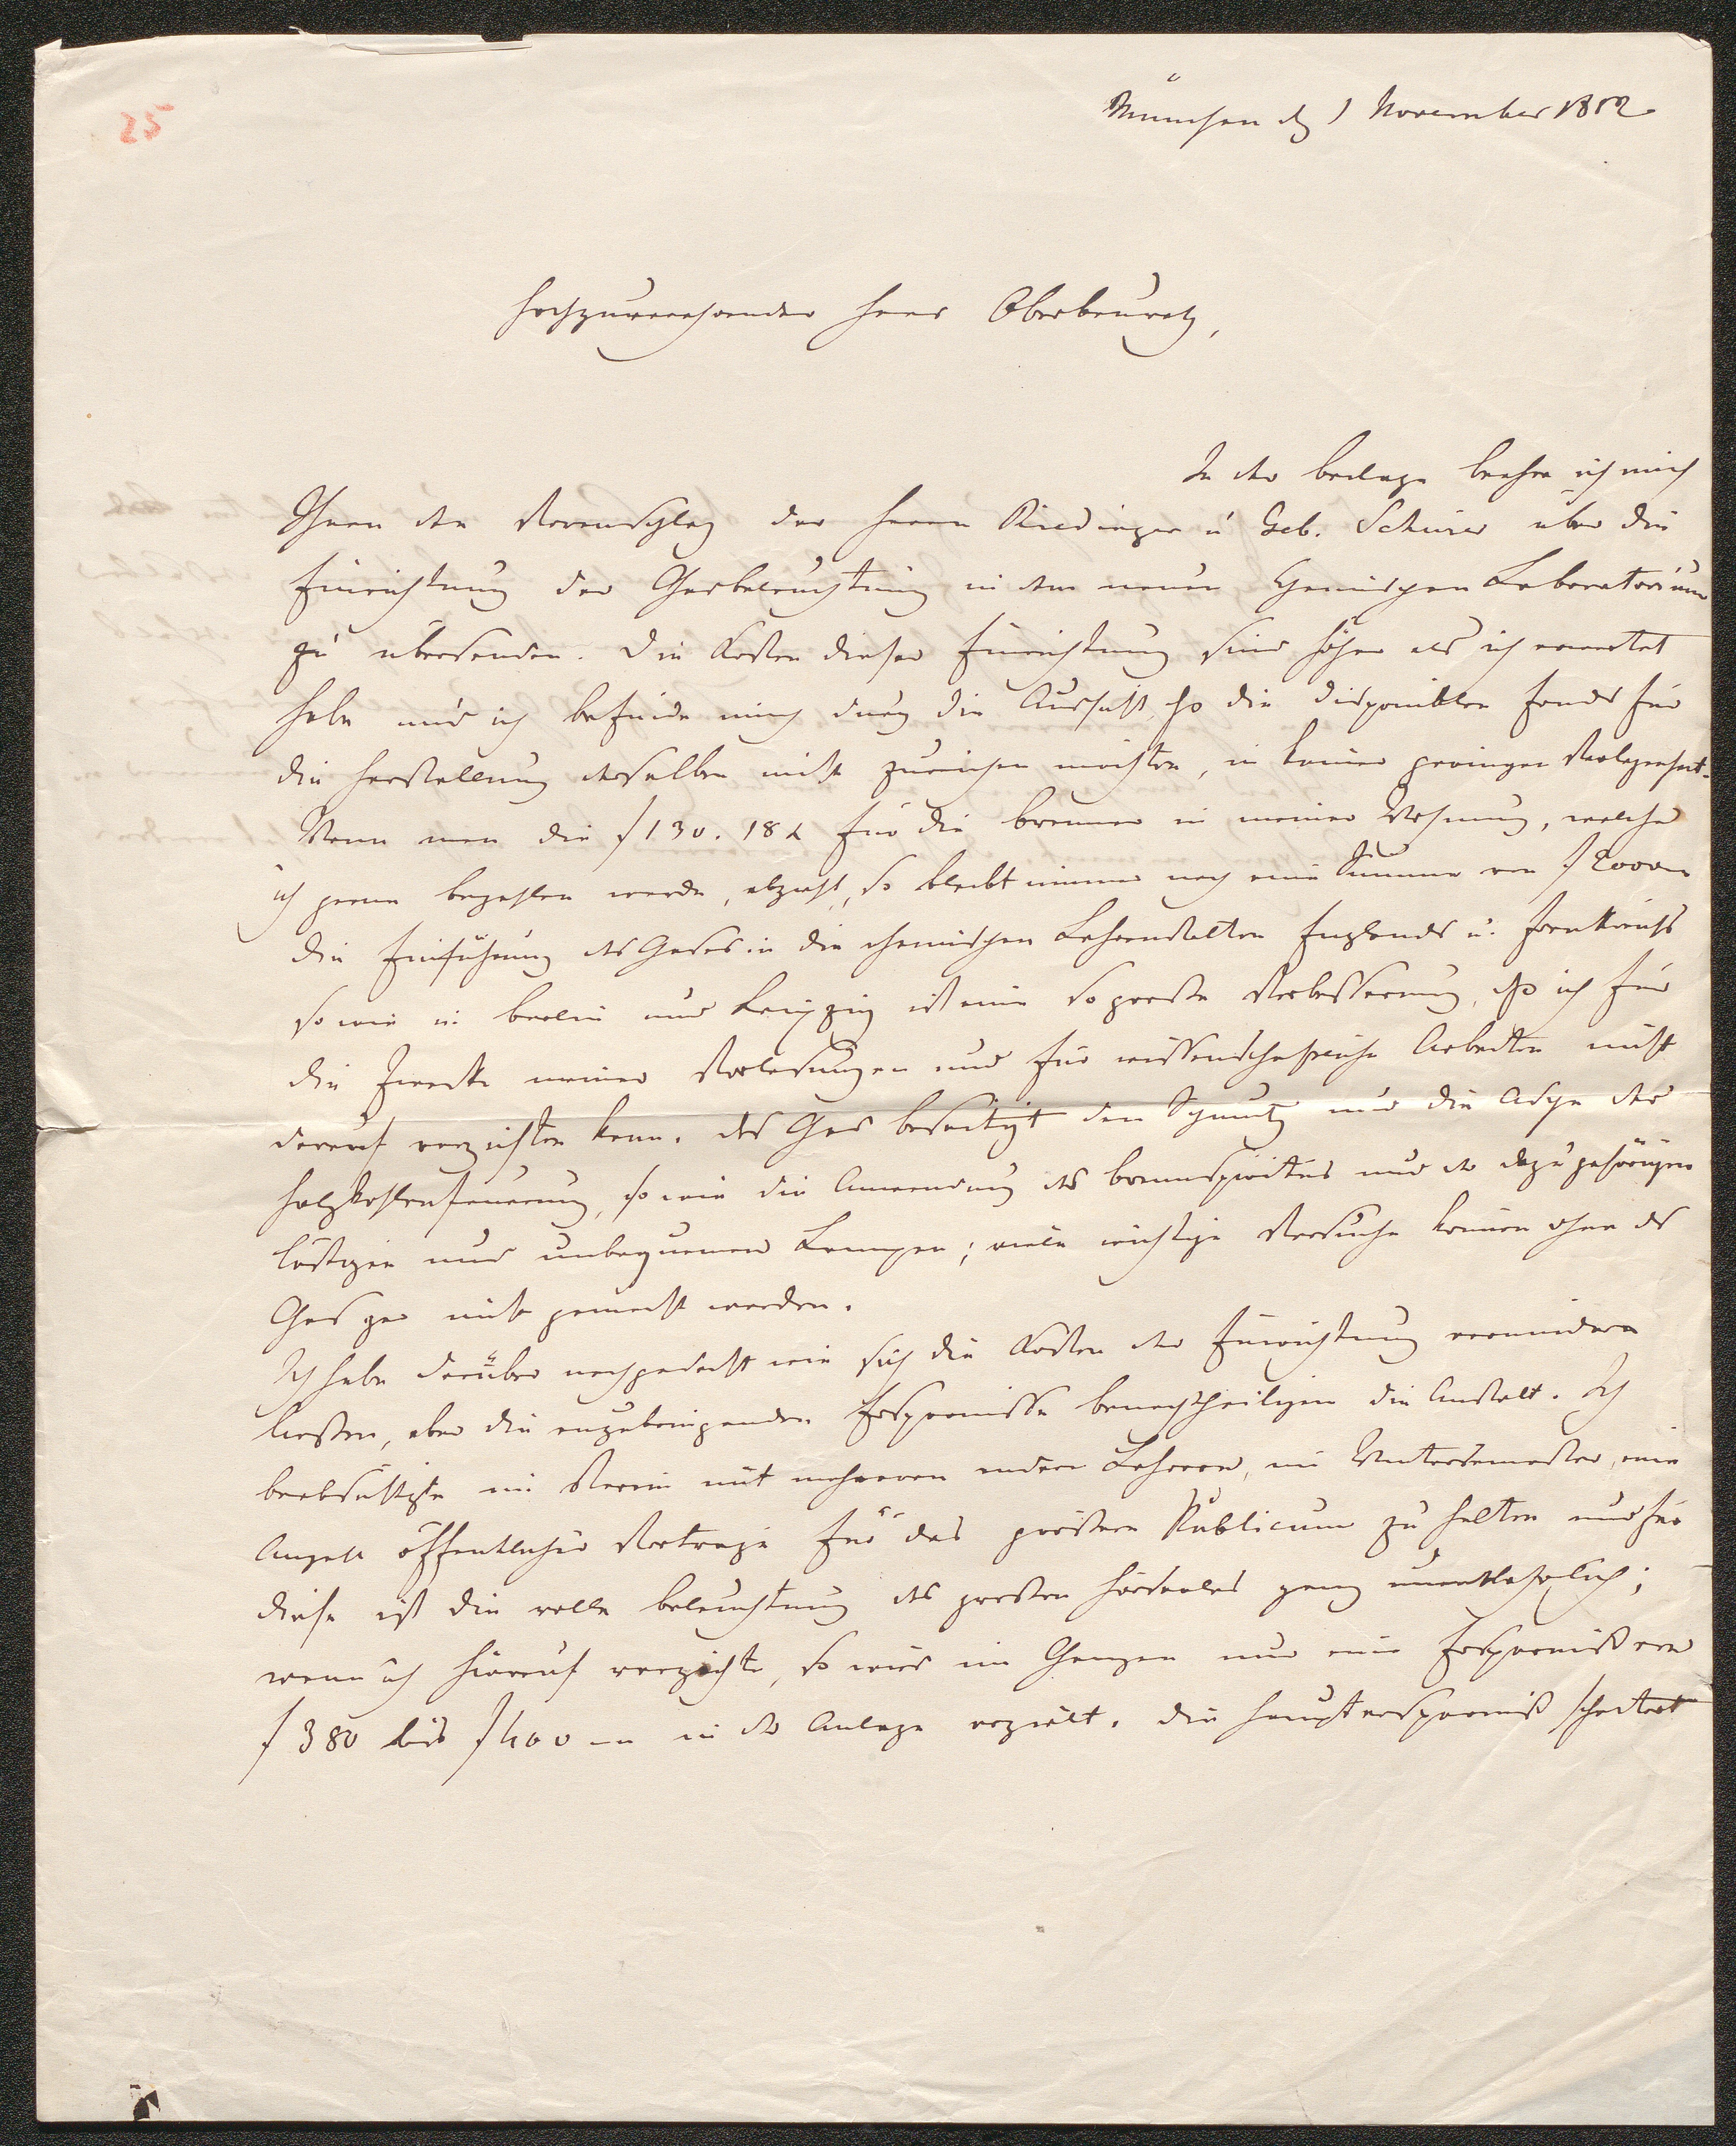 25
München d 1 November 1852
Hochzuverehrender Herr Oberbaurath,
In der Beilage beehre ich mich
Ihnen den Voranschlag der Herrn Riedinger u Geb. Schürer über die
Einrichtung der Gasbeleuchtung in dem neuen chemischen Laboratorium
zu übersenden. Die Kosten dieser Einrichtung sind höher als ich erwartet
habe und ich befinde mich durch die Aussicht, daß die disponiblen Fonds für
die Herstellung derselben nicht zureichen möchten, in keiner geringen Verlegenheit.
Wenn man die f 130. 18 x für die Brenner in meiner Wohnung, welche
ich gerne bezahlen werde, abzieht, so bleibt immer noch eine Summe von f 2000
Die Einführung des Gases in die chemischen Lehranstalten Englands u. Frankreichs
so wie in Berlin und Leipzig ist eine so große Verbesserung, daß ich für
die Zwecke meiner Vorlesungen und für wissenschaftliche Arbeiten nicht
darauf verzichten kann. Das Gas beseitigt den Schmutz und die Asche der
Holzkohlenfeuerung, so wie die Anwendung des Brennspiritus und der dazugehörigen
lästigen und unbequemen Lampen; viele wichtige Versuche können ohne das
Gas gar nicht gemacht werden.
Ich habe darüber nachgedacht wie sich die Kosten der Einrichtung vermindern
ließen, aber die anzubringenden Ersparnisse benachtheiligen die Anstalt. Ich
beabsichtigte im Verein mit mehreren andern Lehrern, im Wintersemester, eine
Anzahl öffentlicher Vorträge für das größere Publicum zu halten und für
diese ist die volle Beleuchtung des großen Hörsaales ganz unentbehrlich;
wenn ich hierauf verzichte, so wird im Ganzen nur eine Ersparniß von
f 380 bis f 400 – in der Anlage erzielt. Die Hauptersparniß scheitert